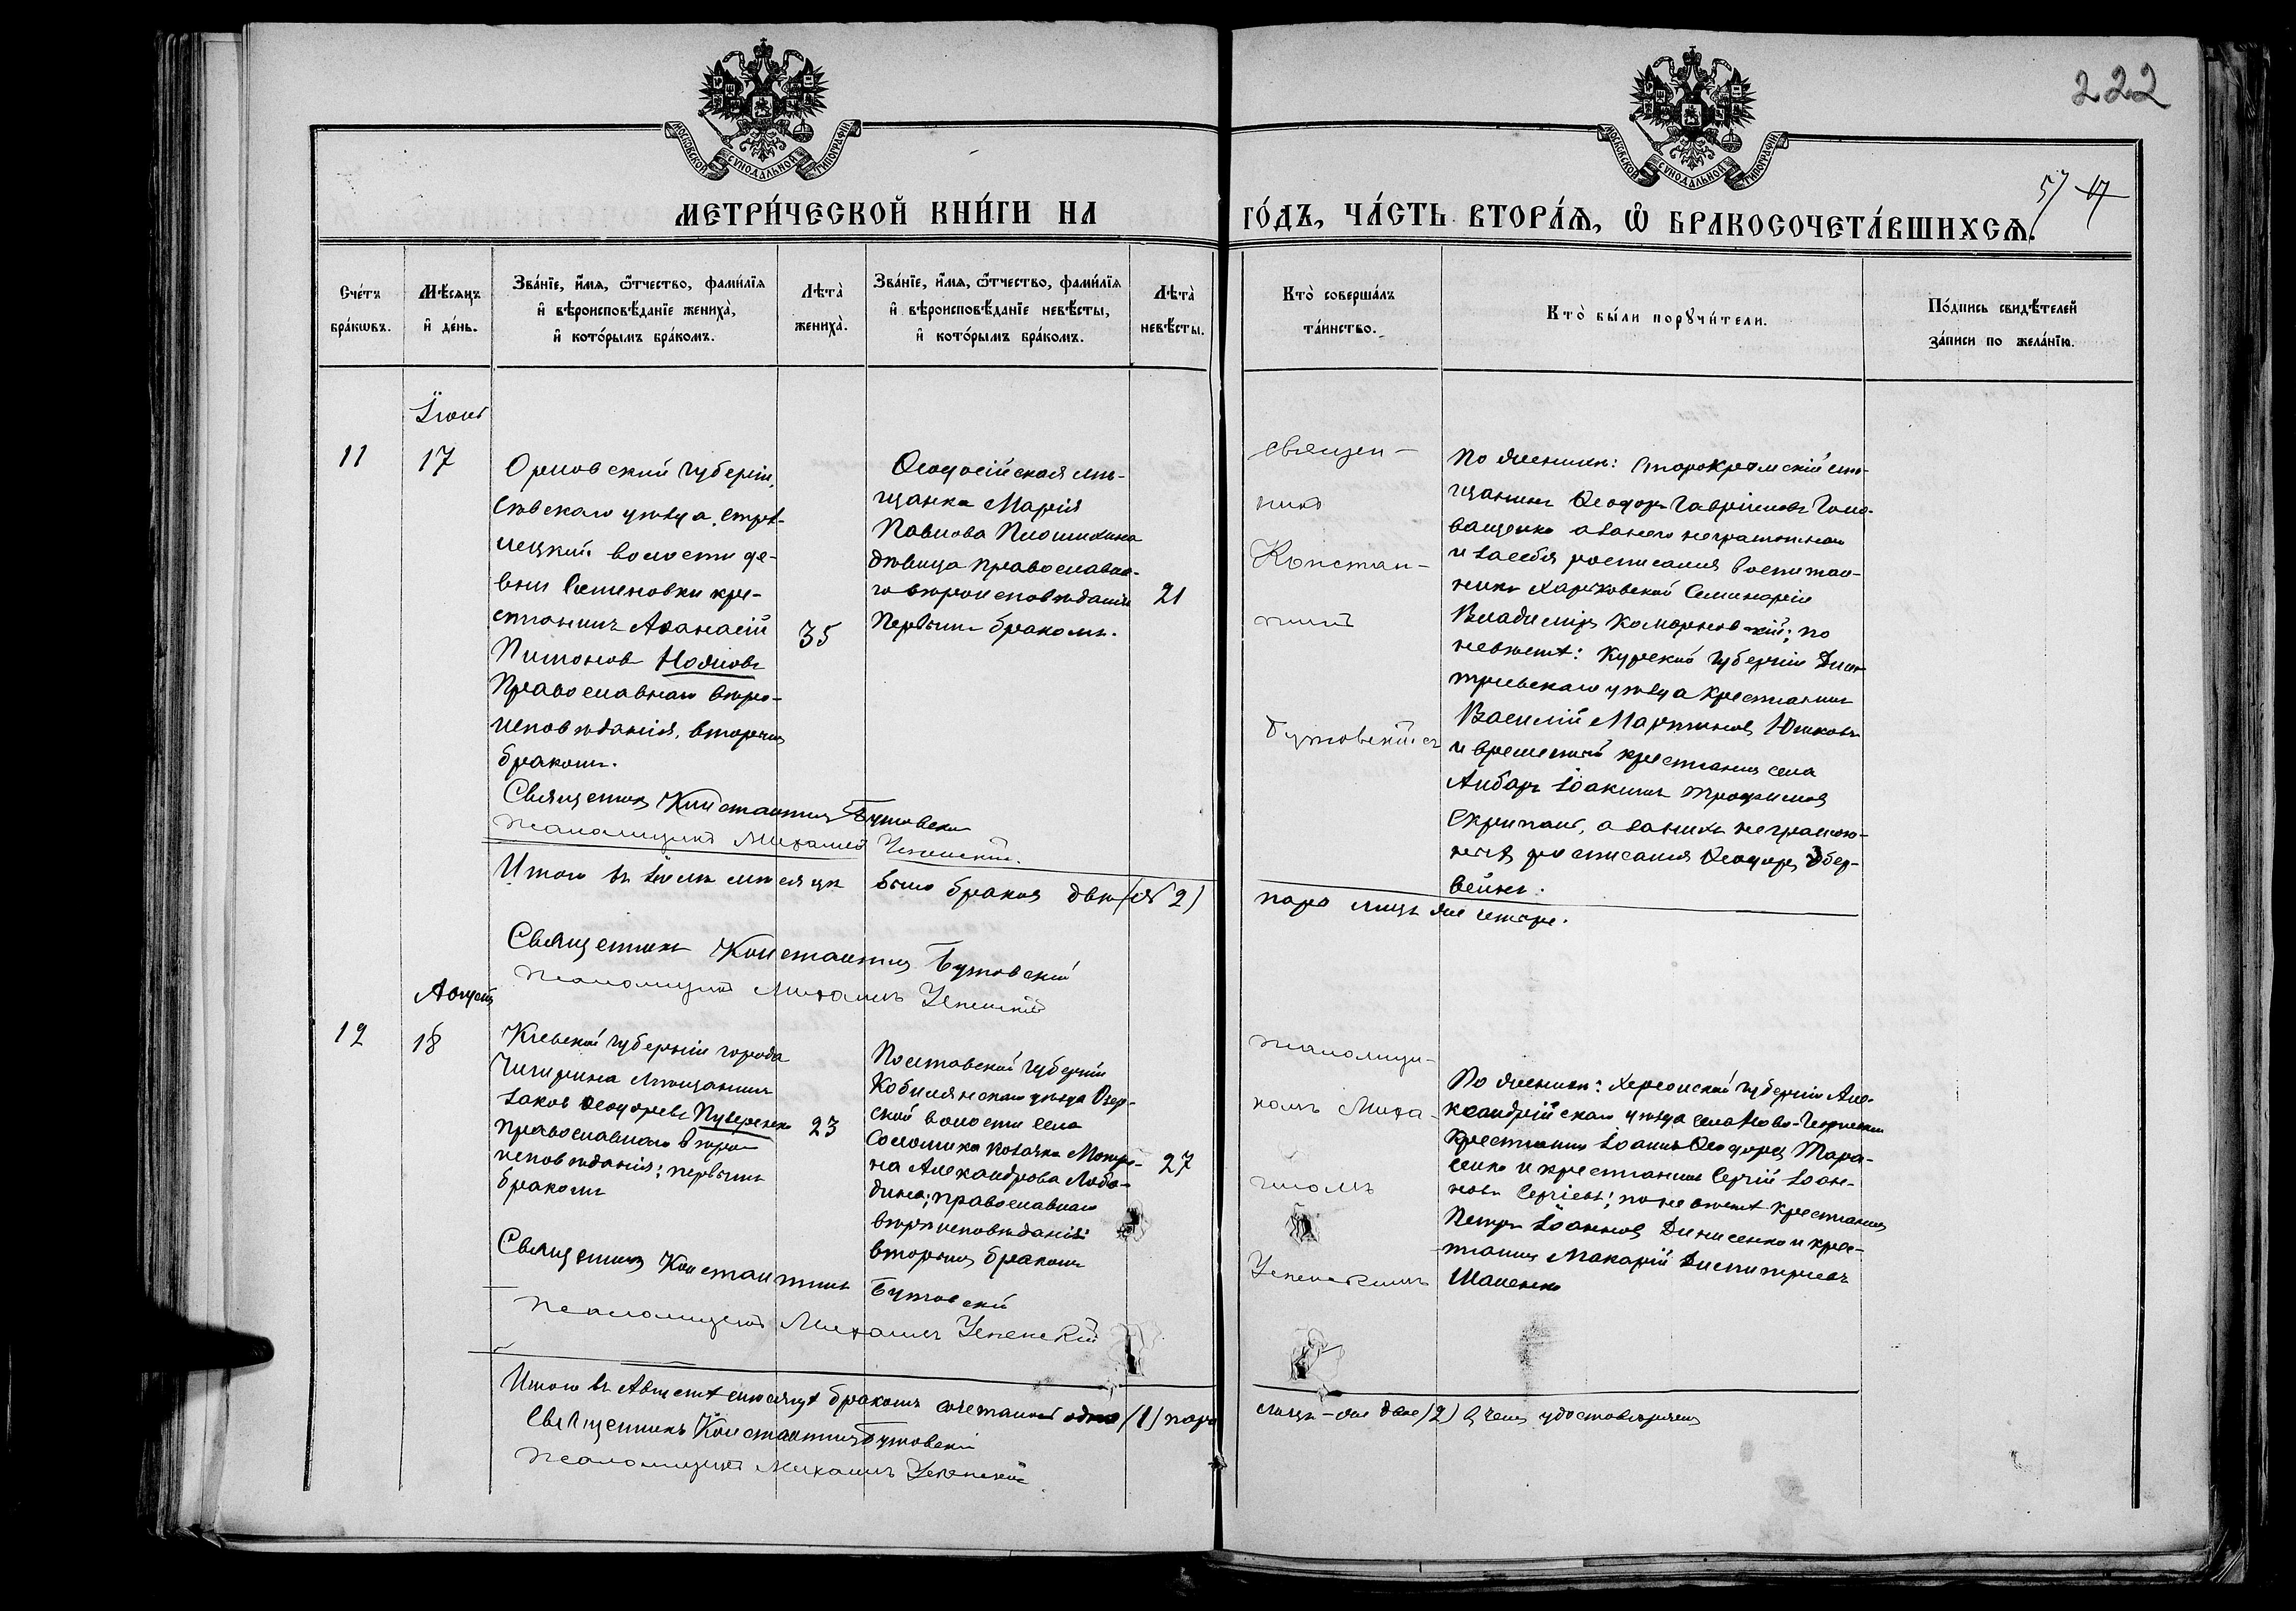 222
57 17
МОСКОВСКОЙ СУНОДАЛЬНОЙ ТИПОГРАФІИ
МОСКОВСКОЙ СУНОДАЛЬНОЙ ТИПОГРАФІИ
МЕТРИ́ЧЕСКОЙ КНИ́ГИ НА
ГО́ДЪ, ЧА́СТЬ ВТОРА́Ѧ, Ѡ҆ БРАКОСОЧЕТА́ВШИХСѦ.
Сче́тъ
бра́кѡвъ.
Мѣ́сяцъ
и҆ де́нь.
Зва́нїе, и҆́мѧ, ѻ҆́тчество, фами́лїѧ
и҆ вѣроисповѣ́данїе жениха̀,
и҆ кото́рымъ бра́комъ.
Лѣта̀
жениха̀.
Зва́нїе, и҆́мѧ, ѻ҆́тчество, фами́лїѧ
и҆ вѣроисповѣ́данїе невѣ́сты,
и҆ кото́рымъ бра́комъ.
Лѣта̀
невѣ́сты.
Кто̀ соверша́лъ
та́инство.
Кто̀ бы́ли порꙋчи́тели.
По́дпись свидѣ́телей
за́писи по жела́нїю.
11
17
Орловской губерніи,
Сѣвскаго уѣзда, Стрѣ-
лецкой волости де-
вни Семеновки кре-
стьянинъ Аѳанасій
Православнаго вѣро-
исповѣданія, вторымъ
бракомъ.
35
Ѳеодосійская мѣ-
щанка Марія
Павлова
дѣвица православна-
го вѣроисповѣданія
Первымъ бракомъ.
21
Священ-
никъ
Констан-
тинъ
Бутовскій съ
По женихѣ: Старокрымскій мѣ-
щанинъ Ѳеодоръ Гавріиловъ Голо-
ващенко а за него неграмотнаго
и за себя росписался воспитан-
никъ Харьковской Семинаріи
Владиміръ по
невѣстѣ: Курской губерніи Дми-
тріевскаго уѣзда крестьянинъ
Василій Мартиновъ Юшковъ
и крестьянинъ села
Анбаръ Іоакимъ Трофимовъ
Скрипаль, а за нихъ неграмот-
ныхъ росписался Ѳеодоръ
Священникъ Константинъ Бутовскій
Псаломщикъ Михаилъ Успенскій.
Итого въ Іюлѣ мѣсяцѣ было браковъ двѣ (№ 2)
пара лицъ же четыре.
Священникъ Константинъ Бутовскій
Псаломщикъ Михаилъ Успенскій
Августъ
12
18
Кіевской губерніи города
Чигирина мѣщанинъ
Іаковъ Ѳеодоревъ
православнаго вѣро-
исповѣданія; первымъ
бракомъ
23
Полтавской губерніи
Кобилянскаго уѣзда Озер-
ской волости села
Солошина козачка Матре-
на Александрова Лобо-
дина; православнаго
вѣроисповѣданія;
вторымъ бракомъ
27
Псаломщи-
комъ Миха-
иломъ
Успенскимъ
По женихѣ: Херсонской губерніи Але-
ксандрійскаго уѣзда села
крестьянинъ Іоаннъ Ѳеодоровъ Тара-
сенко и крестьянинъ Сергій Іоан-
новъ по невѣстѣ крестьянинъ
Петръ Іоанновъ Денисенко и крес-
тьянинъ Макарій Димитріевъ
Священникъ Константинъ Бутовскій
Псаломщикъ Михаилъ Успенскій
Итого въ Августѣ мѣсяцѣ бракомъ сочетанно одна (1) пара
лицъ - же двое (2) в чемъ удостовѣряемъ
Священникъ Константинъ Бутовскій
Псаломщикъ Михаилъ Успенскій